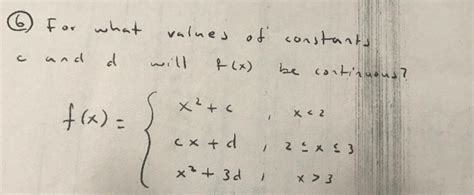 ⑥ For what values of constants
c and d will f(x) be continuous?
f(x) = { x² + c , x < 2
cx + d , 2 ≤ x ≤ 3
x² + 3d , x > 3